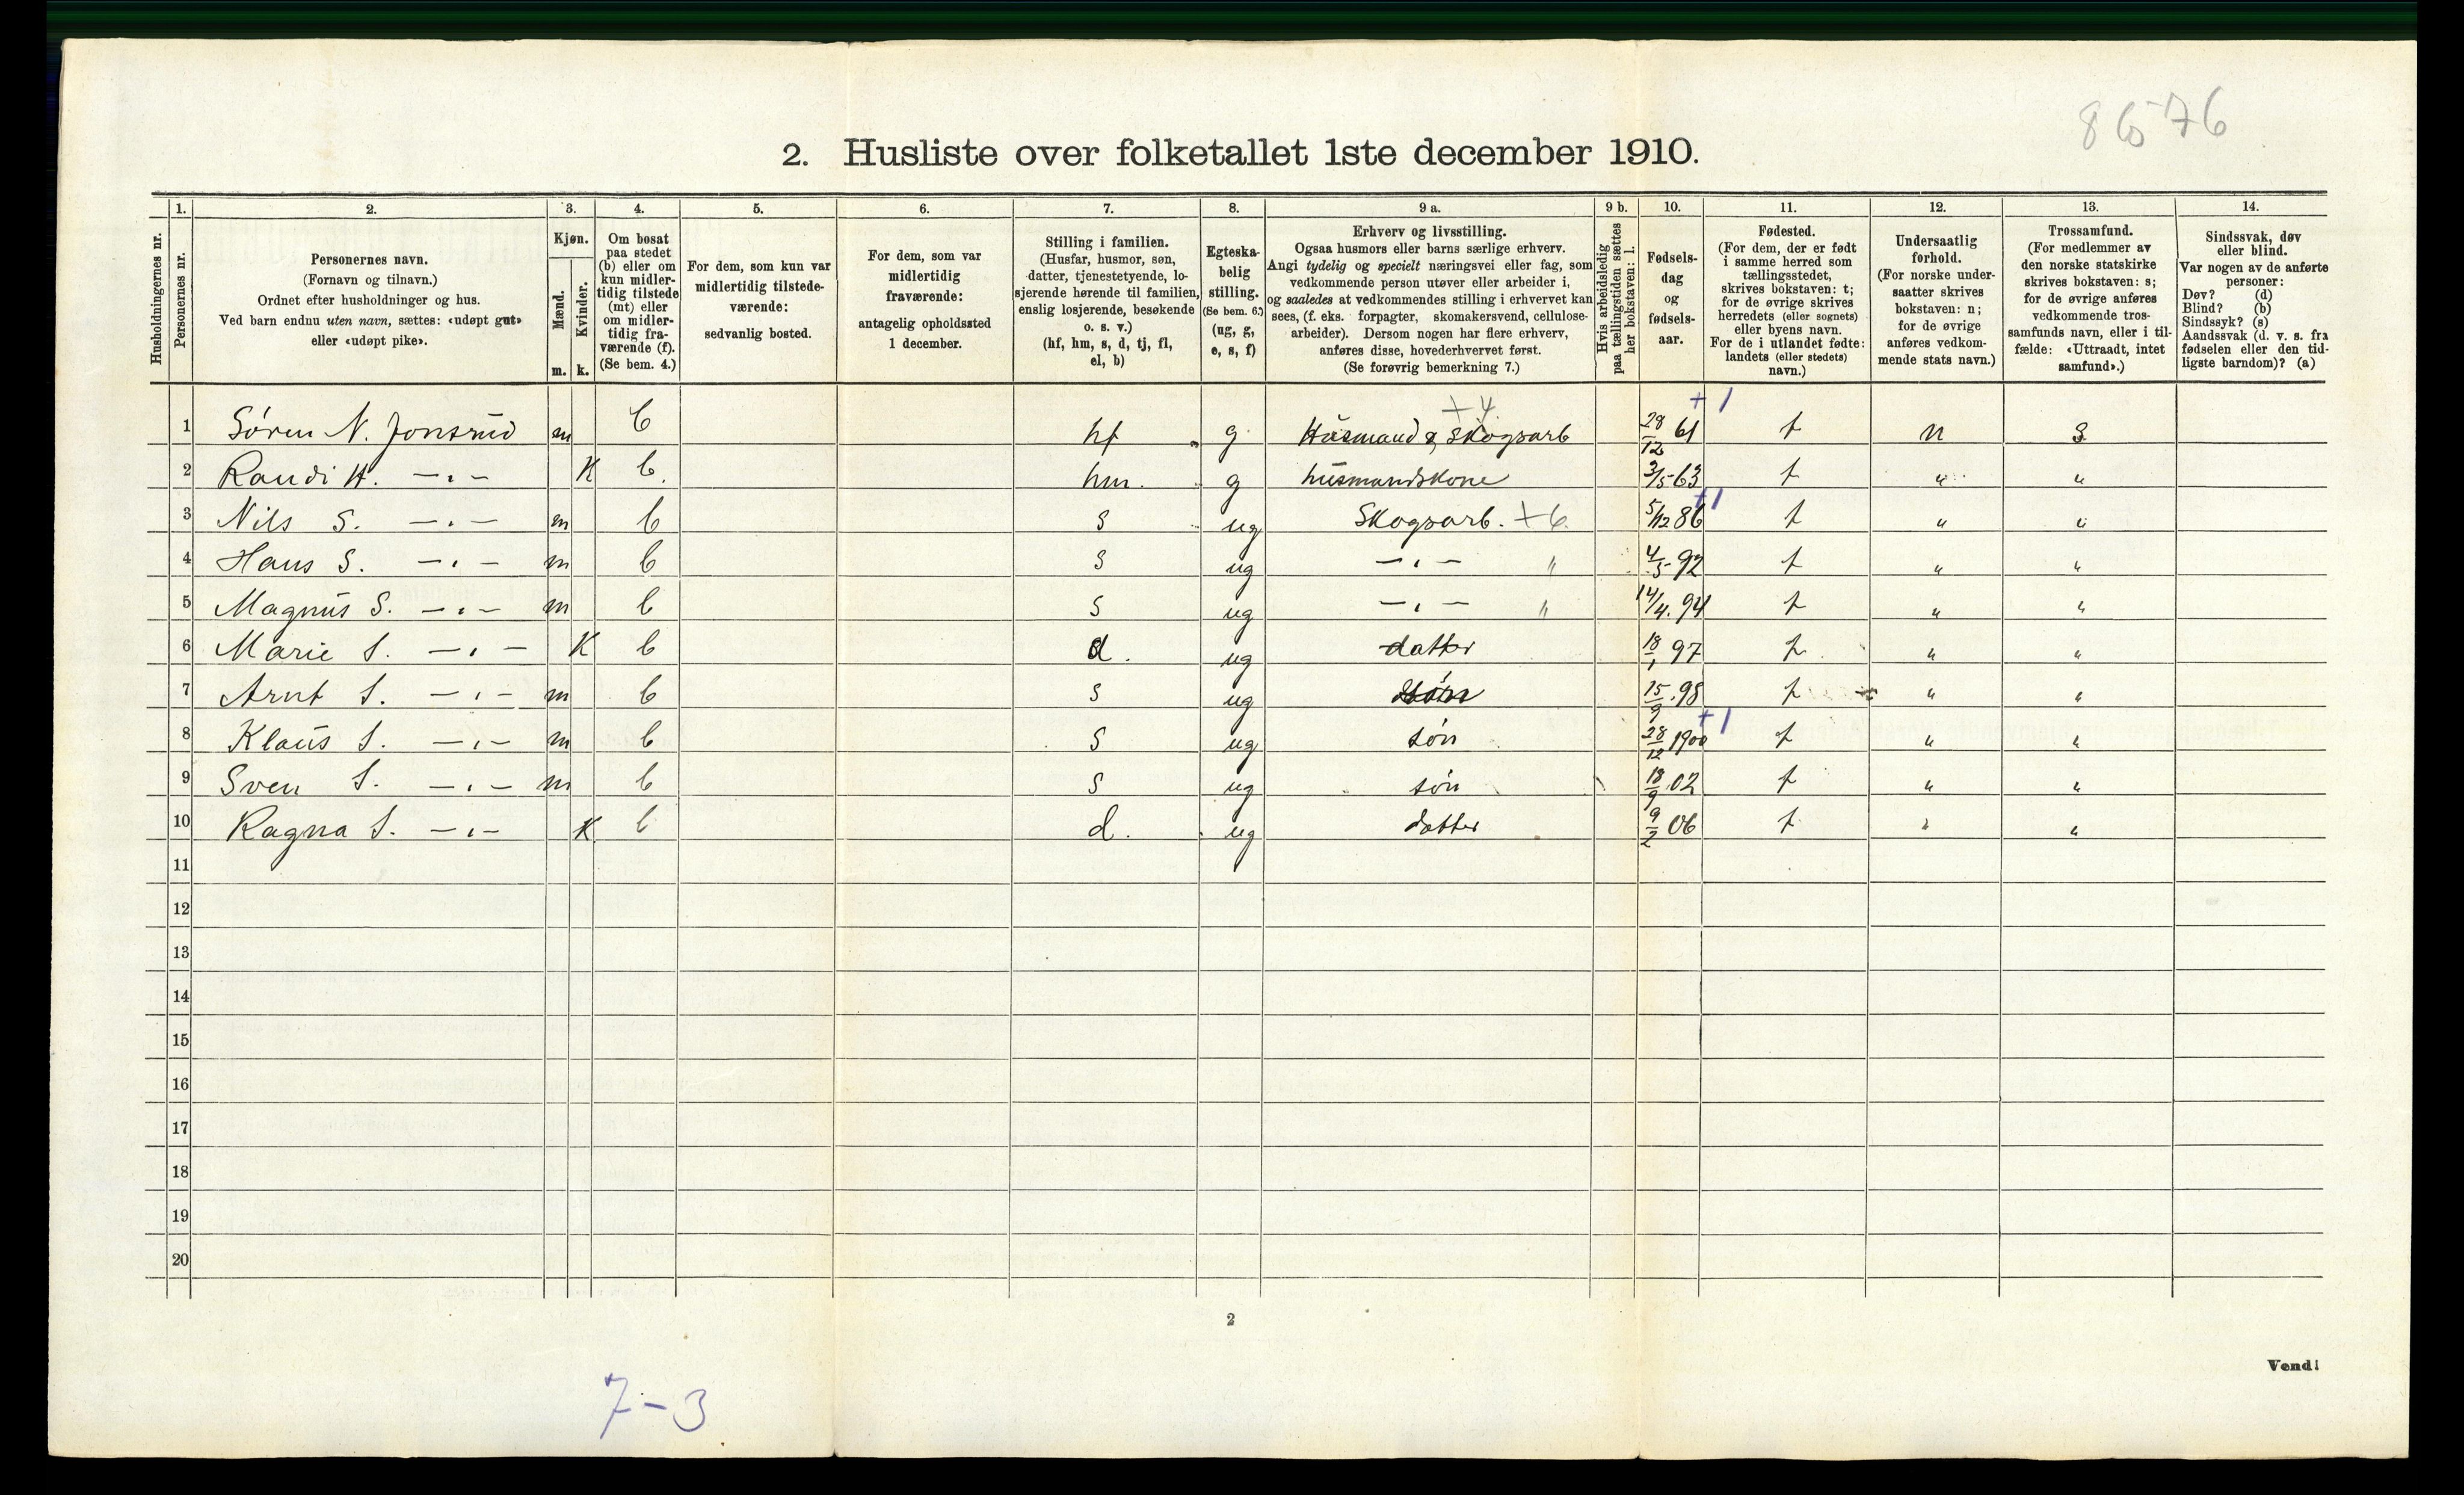 8676
2. Husliste over folketallet 1ste december 1910.
Husholdningernes nr.
1.
Personernes nr.
2.
Personernes navn.
(Fornavn og tilnavn.)
Ordnet efter husholdninger og hus.
Ved barn endnu uten navn, sættes: «udøpt gut»
eller «udøpt pike».
3.
Kjøn.
Mænd.
m.
Kvinder.
k.
4.
Om bosat
paa stedet
(b) eller om
kun midler-
tidig tilstede
(mt) eller
om midler-
tidig fra-
værende (f).
(Se bem. 4.)
5.
For dem, som kun var
midlertidig tilstede-
værende:
sedvanlig bosted.
6.
For dem, som var
midlertidig
fraværende:
antagelig opholdssted
1 december.
7.
Stilling i familien.
(Husfar, husmor, søn,
datter, tjenestetyende, lo-
sjerende hørende til familien,
enslig losjerende, besøkende
o. s. v.)
(hf, hm, s, d, tj, fl,
el, b)
8.
Egteska-
belig
stilling.
(Se bem. 6.)
(ug, g,
e, s, f)
9 a.
Erhverv og livsstilling.
Ogsaa husmors eller barns særlige erhverv.
Angi tydelig og specielt næringsvei eller fag, som
vedkommende person utøver eller arbeider i,
og saaledes at vedkommendes stilling i erhvervet kan
sees, (f. eks. forpagter, skomakersvend, cellulose-
arbeider). Dersom nogen har flere erhverv,
anføres disse, hovederhvervet først.
(Se forøvrig bemerkning 7.)
9 b.
Hvis arbeidsledig
paa tællingstiden sættes
her bokstaven: l.
10.
Fødsels-
dag
og
fødsels-
aar.
11.
Fødested.
(For dem, der er født
i samme herred som
tællingsstedet,
skrives bokstaven: t;
for de øvrige skrives
herredets (eller sognets)
eller byens navn.
For de i utlandet fødte:
landets (eller stedets)
navn.)
12.
Undersaatlig
forhold.
(For norske under-
saatter skrives
bokstaven: n;
for de øvrige
anføres vedkom-
mende stats navn.)
13.
Trossamfund.
(For medlemmer av
den norske statskirke
skrives bokstaven: s;
for de øvrige anføres
vedkommende tros-
samfunds navn, eller i til-
fælde: «Uttraadt, intet
samfund».)
14.
Sindssvak, døv
eller blind.
Var nogen av de anførte
personer:
Døv? (d)
Blind? (b)
Sindssyk? (s)
Aandssvak (d. v. s. fra
fødselen eller den tid-
ligste barndom)? (a)
+4 +1
1 Søren N. Jonsrud m b hf g Husmand & Skogsarb 28/12 61 t n s
2 Randi H. —„— K b. hm. g husmandskone 3/5 63 t „ „
3 Nils S. —„— m b s ug Skogsarb. +6. 5/12 86 +1 t „ „
4 Hans S. —„— m b s ug —„— „ 4/5 92 t „ „
5 Magnus S. —„— m b s ug —„— „ 14/4. 94 t „ „
6 Marie S. —„— K b d. ug datter 18/1 97 t „ „
7 Arnt S. —„— m b s ug søn 15/9 .98 t „ „
8 Klaus S. —„— m b s ug søn 28/12 1900 +1 t „ „
9 Sven S. —„— m b s ug søn 18/9 .02 t „ „
10 Ragna S. —„— K b d. ug datter 9/2 06 t „ „
11
12
13
14
15
16
17
18
19
20
2
Vend!
7-3